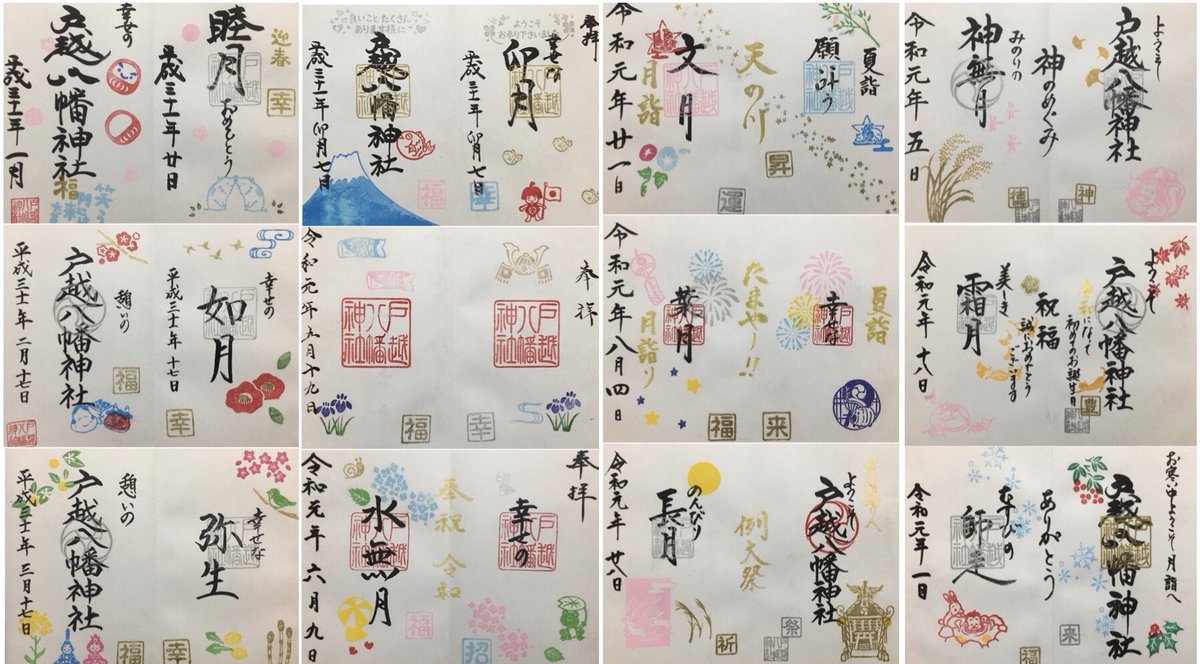 迎春
幸
睦月
おめでとう
平成三十一年廿日
幸せの
戸越八幡神社
福
平成三十一年一月
幸せの
如月
平成三十一年十七日
幸
憩いの
戸越八幡神社
福
平成三十一年二月十七日
幸せな
弥生
幸
憩いの
戸越八幡神社
福
平成三十一年三月十七日
奉拝
ようこそ
お参り下さいました
幸せな
卯月
平成三十一年卯月七日
幸
良いことたくさん
ありますように
戸越八幡神社
福
平成三十一年卯月七日
奉拝
戸越八幡神社
幸
戸越八幡神社
福
令和元年五月十九日
奉拝
幸せの
戸越八幡神社
招
奉祝 令和
水無月
福
令和元年六月九日
夏詣
願叶う
天の川
昇
文月
月詣
運
令和元年廿一日
夏詣
幸せな
たまやー!!
来
葉月
月詣り
福
令和元年八月四日
ようこそ
戸越八幡神社
例大祭
祭
のんびり
長月
祈
令和元年廿八日
ようこそ
戸越八幡神社
神のめぐみ
神
みのりの
神無月
徳
令和元年五日
ようこそ
戸越八幡神社
令和になって
初めてのお誕生日
祝福
誠におめでとう
ございます
豊
美しき
霜月
令和元年十八日
お寒い中ようこそ月詣へ
戸越八幡神社
ありがとう
来
なすびの
師走
福
令和元年一日